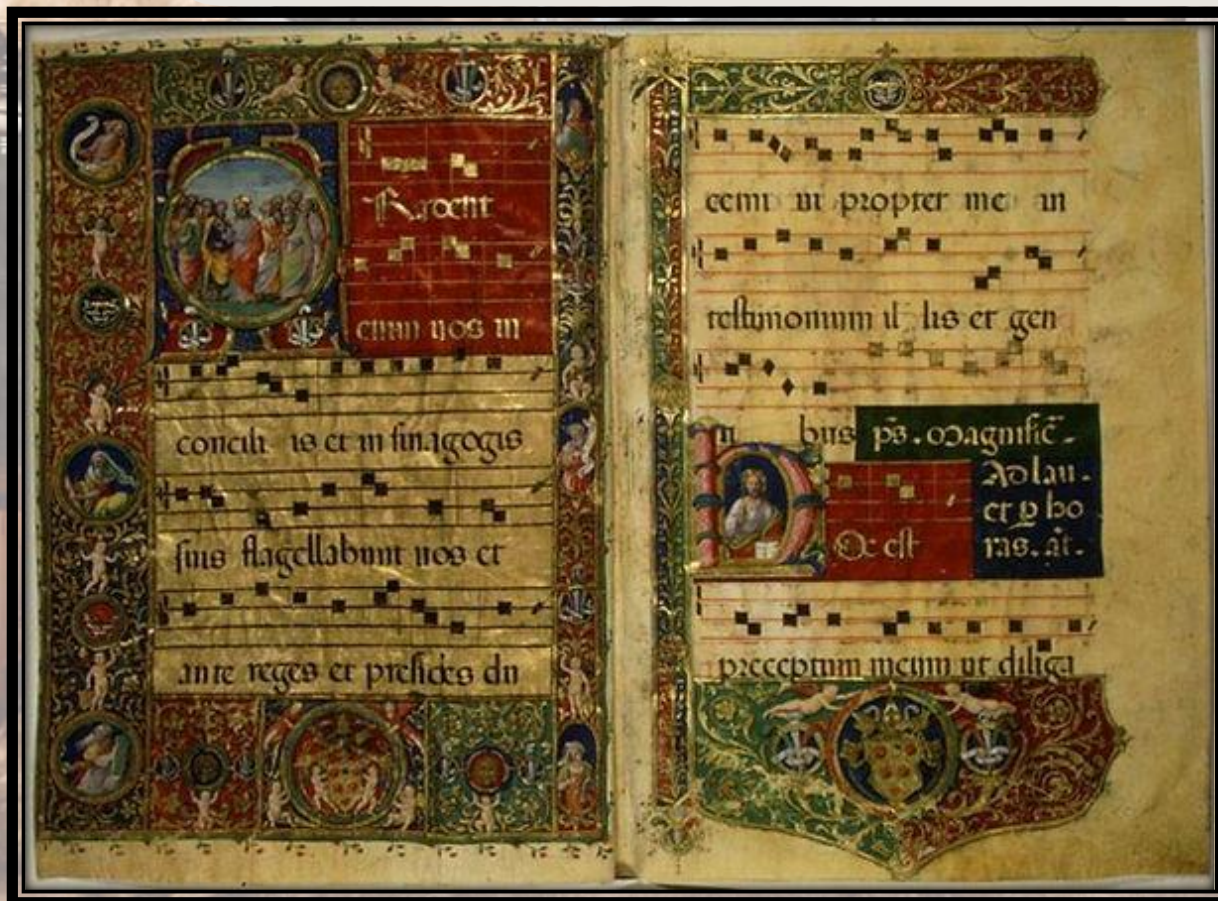 Tradent
enim uos in
concili is et in sinagogis
suis flagellabunt uos et
ante reges et presides du
cemi ni propter me in
testimonium il lis et gen
ti bus ps. Magnific̄.
Ad lau.
et p ho
ras. añ.
Oc est
preceptum meum ut diliga